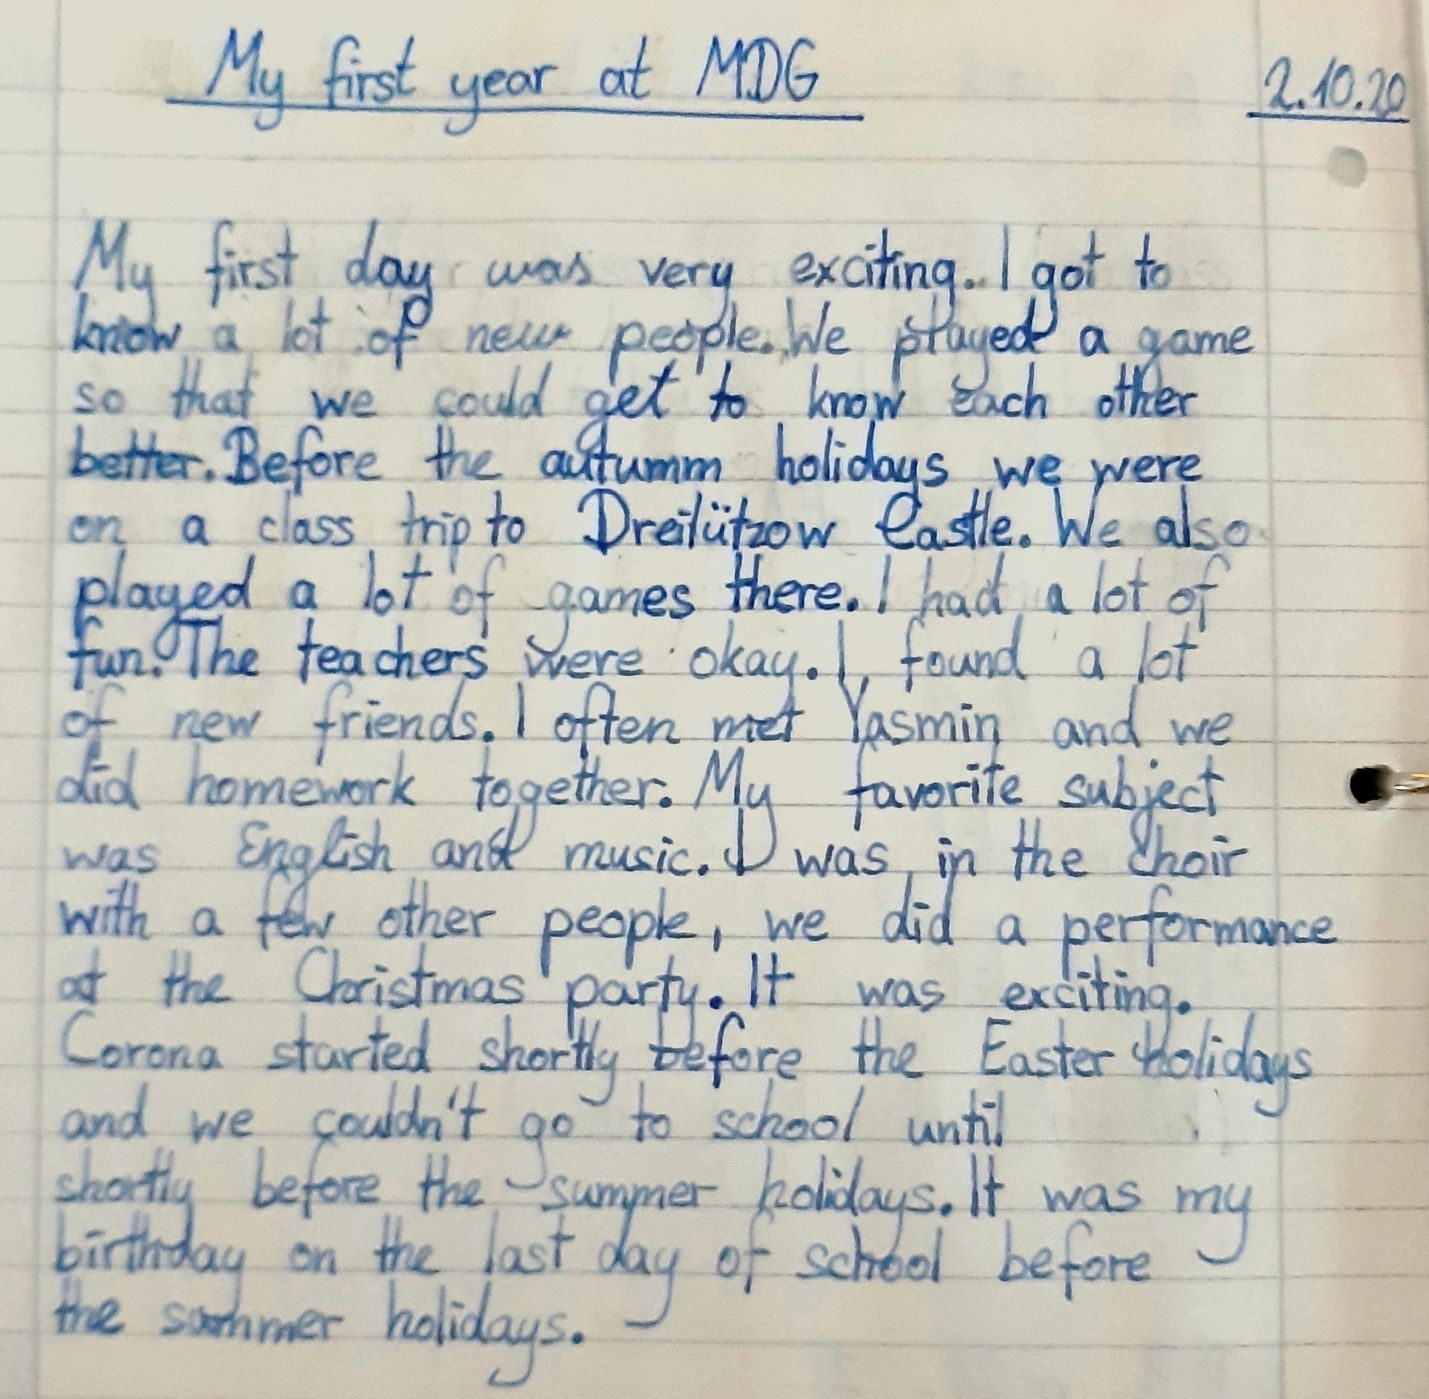 My first year at MDG 2.10.20
My first day was very exciting. I got to
know a lot of new people. We played a game
so that we could get to know each other
better. Before the autumm holidays we were
on a class trip to Dreilützow Castle. We also
played a lot of games there. I had a lot of
fun. The teachers were okay. I found a lot
of new friends. I often met Yasmin and we
did homework together. My favorite subject
was English and music. I was in the choir
with a few other people, we did a performance
at the Christmas party. It was exciting.
Corona started shortly before the Easter holidays
and we couldn't go to school until
shortly before the summer holidays. It was my
birthday on the last day of school before
the summer holidays.